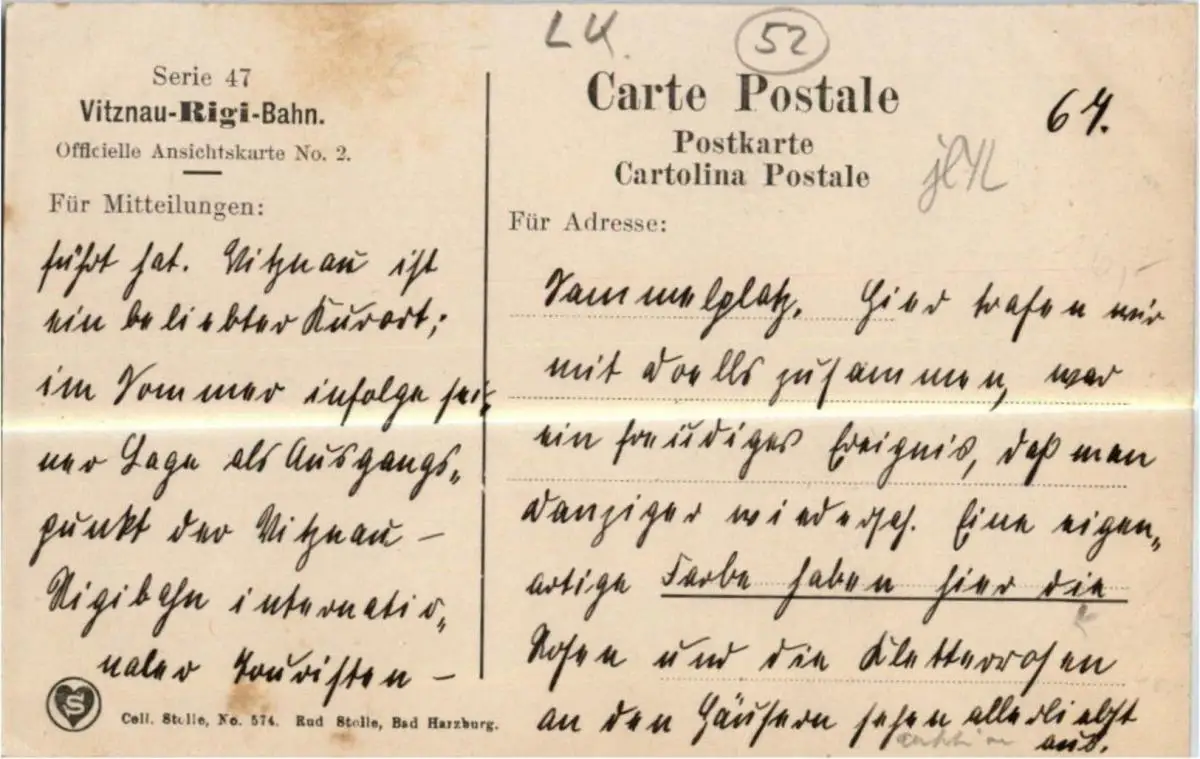 LK.
52
64.
Serie 47
Vitznau-Rigi-Bahn.
Officielle Ansichtskarte No. 2.
Für Mitteilungen:
führt hat. Vitznau ist
ein beliebter Kurort;
im Sommer infolge sei-
ner Lage als Ausgangs-
punkt der Vitznau –
Rigibahn internatio-
naler Touristen –
S
Coll. Stolle, No. 574. Rud Stolle, Bad Harzburg.
Carte Postale
Postkarte
Cartolina Postale
Für Adresse:
Sammelplatz. Hier trafen wir
mit Doells zusammen, war
ein freudiges Ereignis, daß man
Danziger wiedersah. Eine eigen-
artige Farbe haben hier die
Rosen und die Kletterrosen
an den Häusern sehen allerliebst
aus.